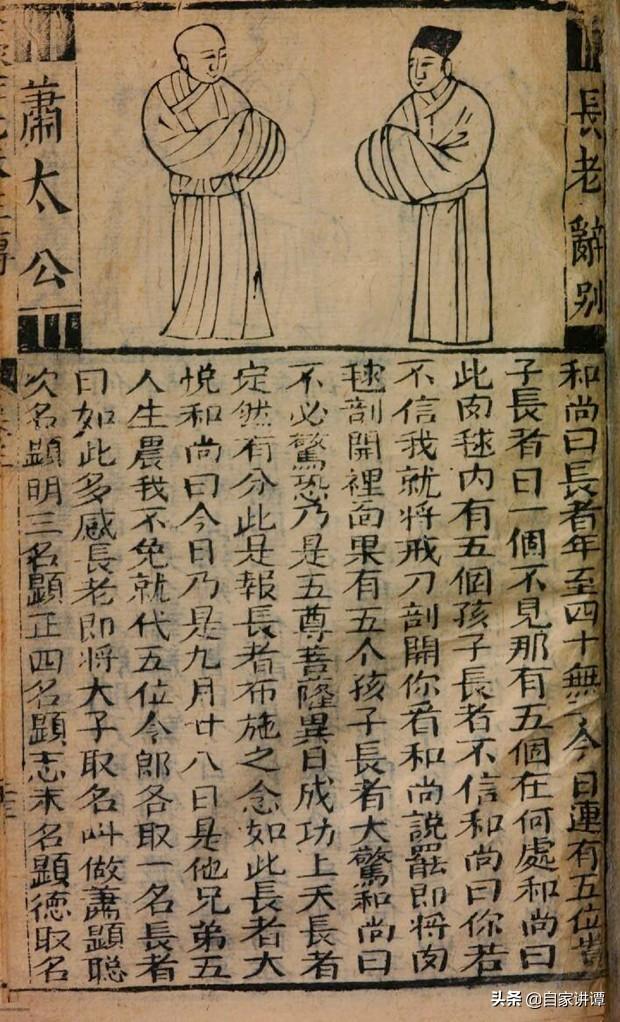 長老辭别
蕭太公
和尚曰長者年至四十無今日連有五位
子長者曰一個不見那有五個在何處和尚曰
此肉毬内有五個孩子長者不信和尚曰你若
不信我就將戒刀剖開你看和尚說罷即將肉
毬剖開裡面果有五个孩子長者大驚和尚曰
不必驚恐乃是五尊菩薩異日成功上天長者
定然有分此是報長者布施之念如此長者大
悅和尚曰今日乃是九月廿八日是他兄弟五
人生農我不免就代五位令郎各取一名長者
曰如此多感長老即將大子取名叫做蕭顕聰
次名顕明三名顕正四名顕志末名顕德取名
头条 @自家讲谭